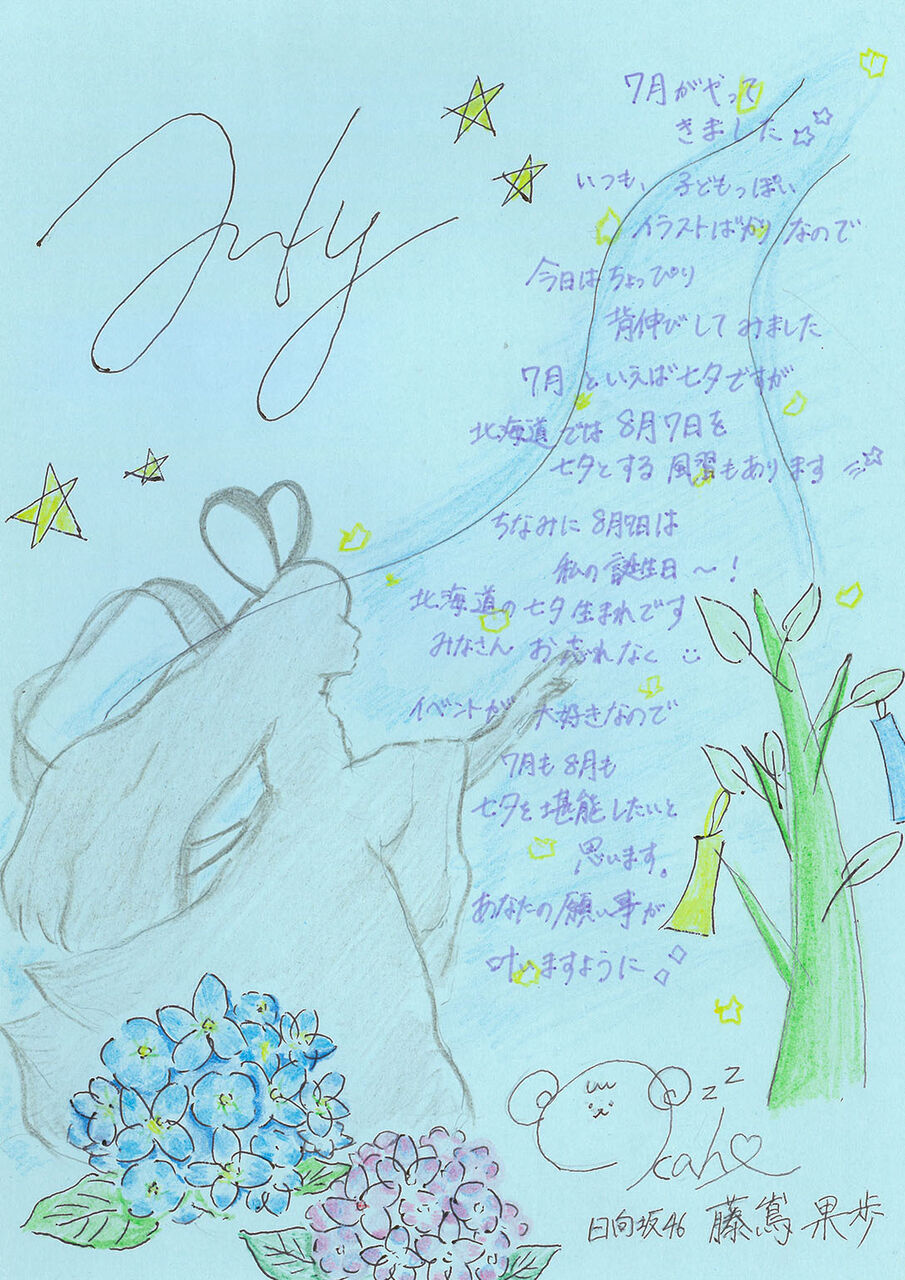 July
7月がやって
きました
いつも、子どもっぽい
イラストばかりなので
今日はちょっぴり
背伸びしてみました
7月といえば七夕ですが
北海道では8月7日を
七夕とする風習もあります
ちなみに8月7日は
私の誕生日〜!
北海道の七夕生まれです
みなさんお忘れなく
イベントが大好きなので
7月も8月も
七夕を堪能したいと
思います。
あなたの願い事が
叶いますように
zz
kaho
日向坂46 藤嶌果歩